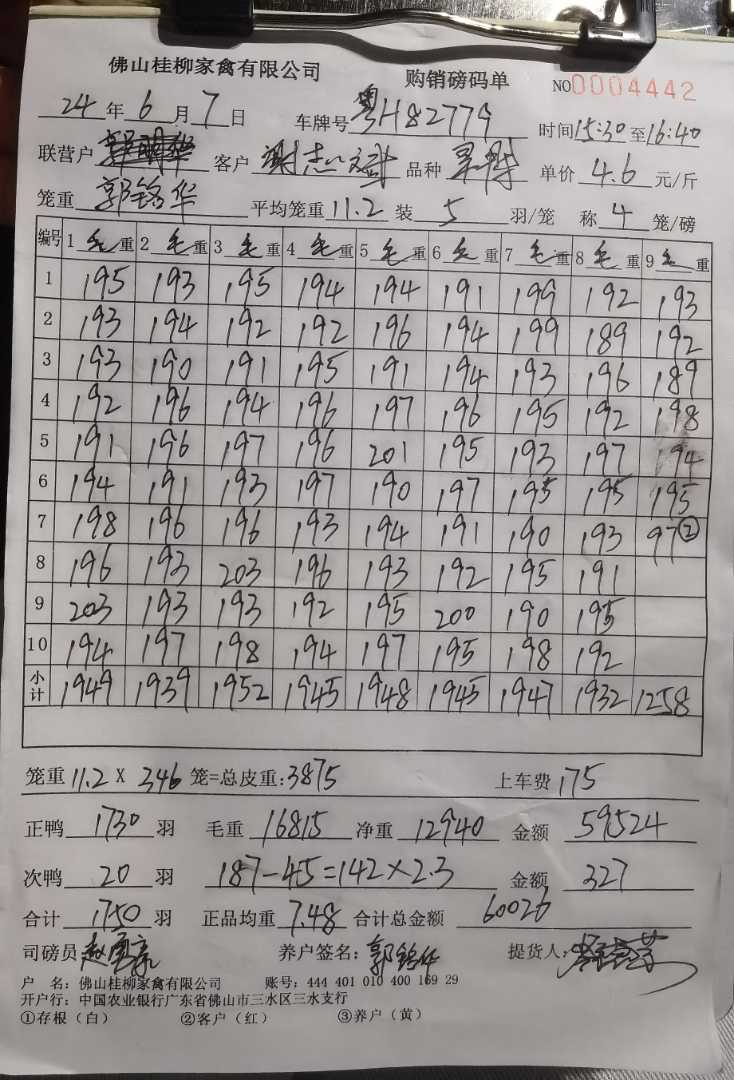 佛山桂柳家禽有限公司 购销磅码单 NO0004442
24年6月7日 车牌号粤H82779 时间15:30至16:40
联营户 客户谢志斌 品种 单价4.6元/斤
笼重 郭铭华 平均笼重11.2装5羽/笼 称4笼/磅
编号 1毛重 2毛重 3毛重 4毛重 5毛重 6毛重 7毛重 8毛重 9毛重
1 195 193 195 194 194 191 199 192 193
2 193 194 192 192 196 194 199 189 192
3 193 190 191 195 191 194 193 196 189
4 192 196 194 196 197 196 195 192 198
5 191 196 197 196 201 195 193 197 194
6 194 191 193 197 190 197 195 195 195
7 198 196 196 193 194 191 190 193 97②
8 196 193 203 196 193 192 195 191
9 203 193 193 192 195 200 190 195
10 194 197 198 194 197 195 198 192
小计 1949 1939 1952 1945 1948 1945 1947 1932 1258
笼重11.2X346笼=总皮重:3875 上车费175
正鸭1730羽 毛重16815净重12940金额59524
次鸭20羽 187-45=142×2.3 金额327
合计1750羽 正品均重7.48合计总金额60026
司磅员 养户签名:郭铭华 提货人:
户 名:佛山桂柳家禽有限公司 账号:444 401 010 400 169 29
开户行:中国农业银行广东省佛山市三水区三水支行
①存根(白) ②客户(红) ③养户(黄)